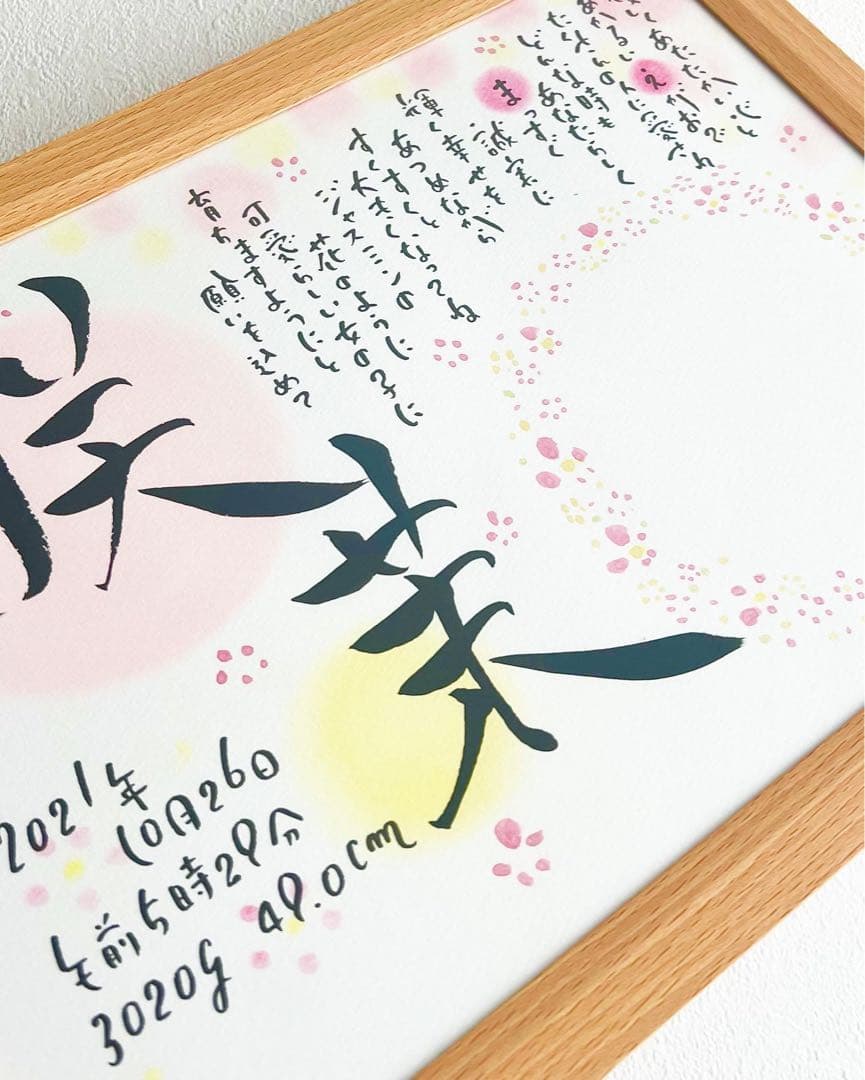 くあたたかい心と
あかるいえがおで
たくさんの人に愛され
どんな時もあなたらしく
まっすぐ誠実に
輝く幸せをあつめながら
すくすく大きくなってね
ジャスミンの花のように
可愛らしい女の子に
育ちますようにと
願いを込めて
咲茉
2021年
10月26日
午前5時29分
3020g 49.0cm